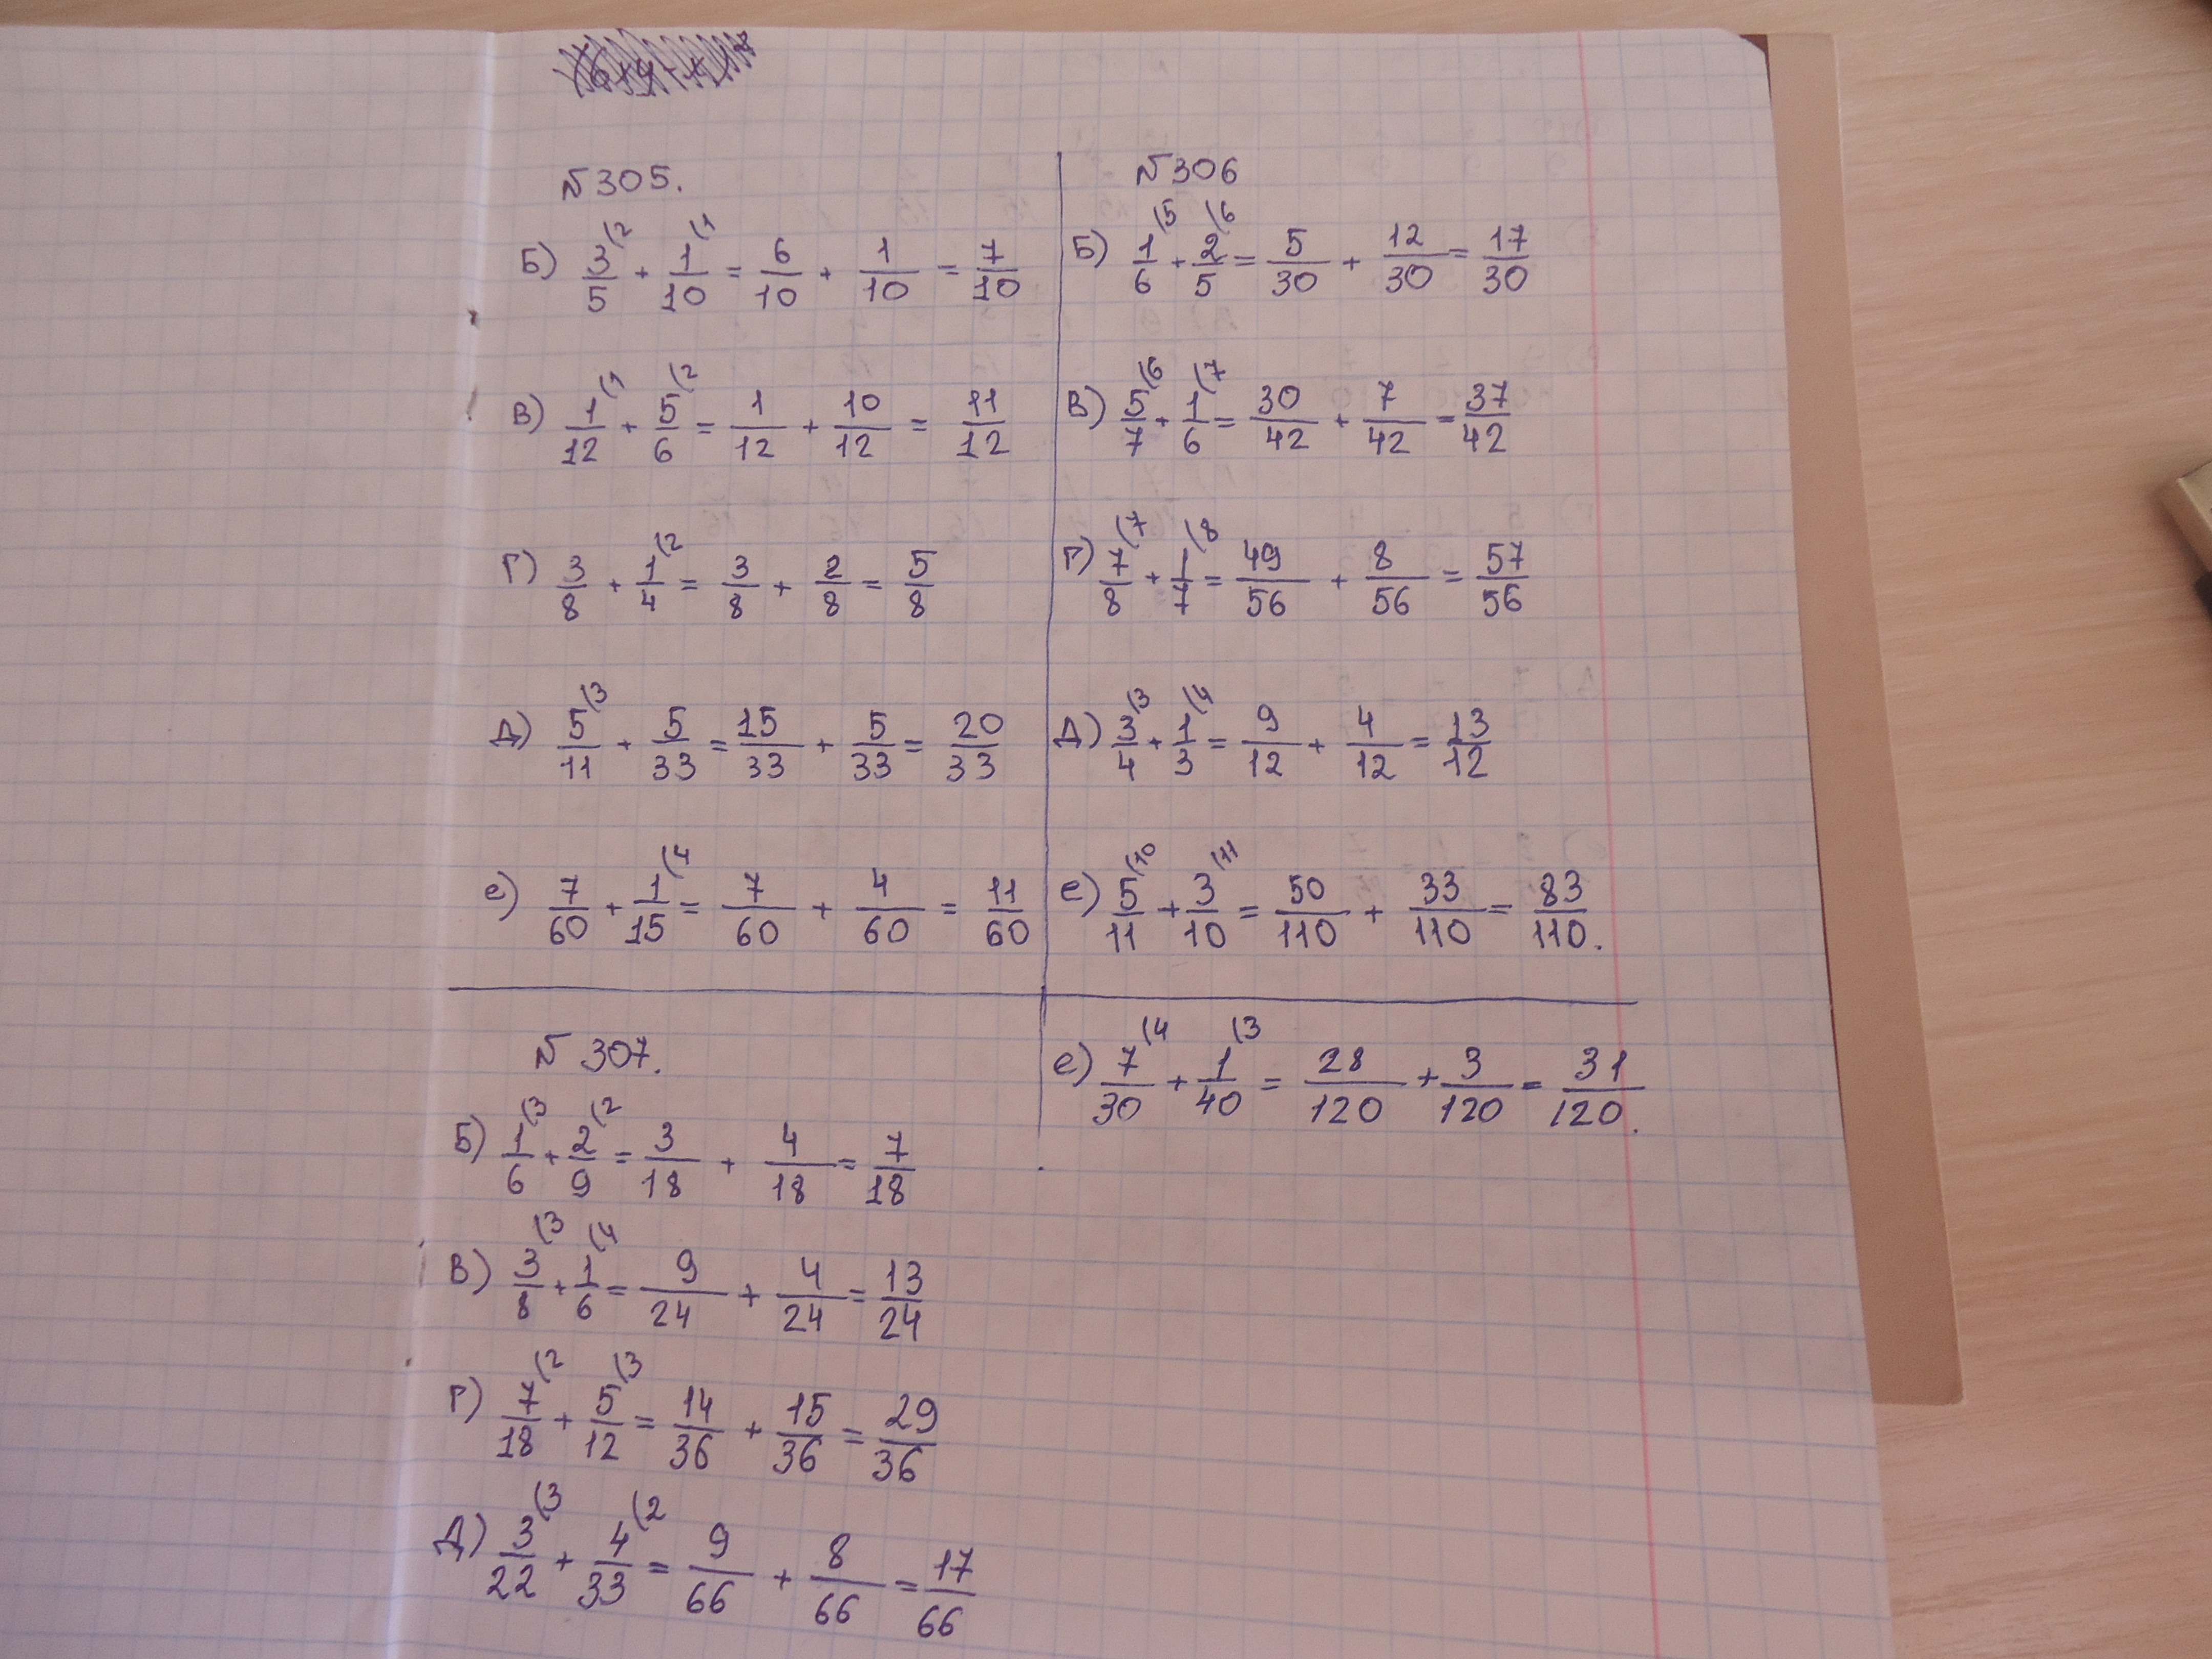 №305.
Б) 3/5 (2 + 1/10 (1 = 6/10 + 1/10 = 7/10
В) 1/12 (1 + 5/6 (2 = 1/12 + 10/12 = 11/12
Г) 3/8 + 1/4 (2 = 3/8 + 2/8 = 5/8
Д) 5/11 (3 + 5/33 = 15/33 + 5/33 = 20/33
е) 7/60 + 1/15 (4 = 7/60 + 4/60 = 11/60
№306
Б) 1/6 (5 + 2/5 (6 = 5/30 + 12/30 = 17/30
В) 5/7 (6 + 1/6 (7 = 30/42 + 7/42 = 37/42
Г) 7/8 (7 + 1/7 (8 = 49/56 + 8/56 = 57/56
Д) 3/4 (3 + 1/3 (4 = 9/12 + 4/12 = 13/12
е) 5/11 (10 + 3/10 (11 = 50/110 + 33/110 = 83/110.
№307.
Б) 1/6 (3 + 2/9 (2 = 3/18 + 4/18 = 7/18
В) 3/8 (3 + 1/6 (4 = 9/24 + 4/24 = 13/24
Г) 7/18 (2 + 5/12 (3 = 14/36 + 15/36 = 29/36
Д) 3/22 (3 + 4/33 (2 = 9/66 + 8/66 = 17/66
е) 7/30 (4 + 1/40 (3 = 28/120 + 3/120 = 31/120.